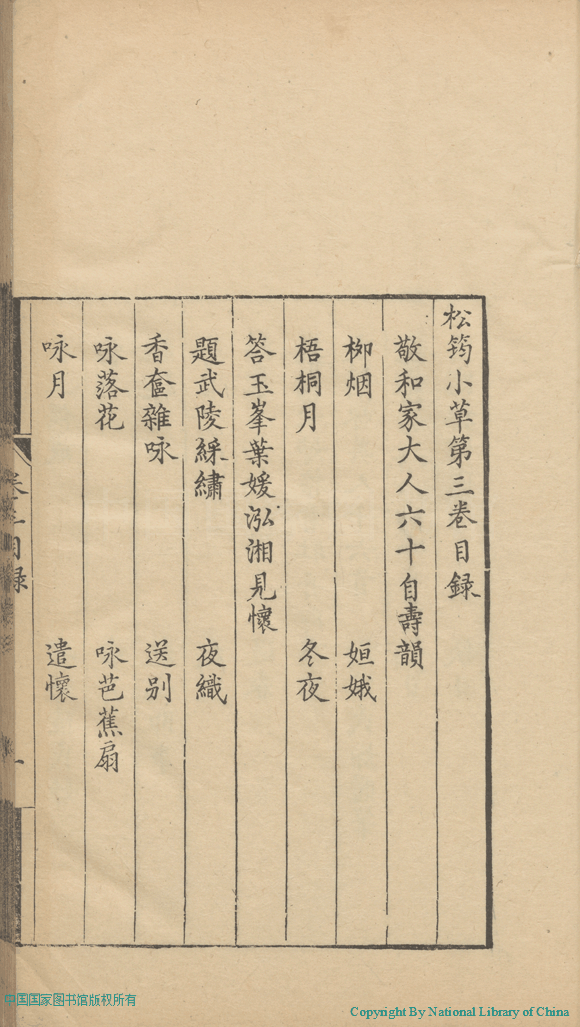 松筠小草第三卷目録
敬和家大人六十自壽韻
柳烟 姮娥
梧桐月 冬夜
答玉峯葉媛泓湘見懷
題武陵綵繡 夜織
香奩雜咏 送别
咏落花 咏芭蕉扇
咏月 遣懷
卷三目録
一
中国国家图书馆版权所有
Copyright By National Library of China